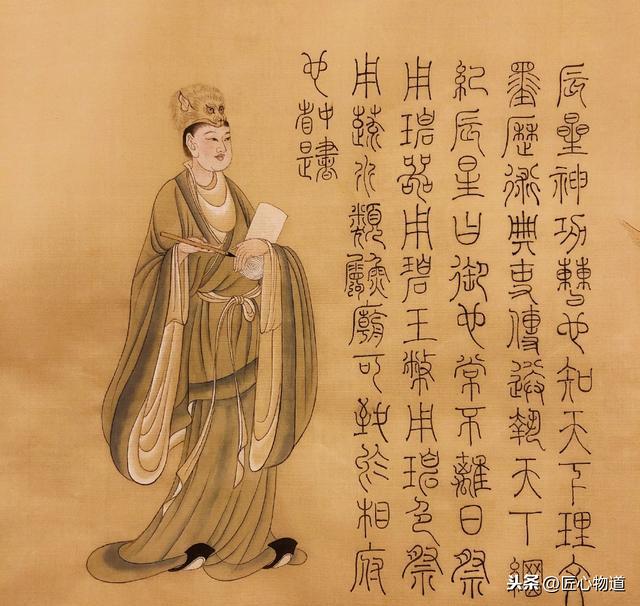 辰星神功曹也知天下理文
墨歷術典吏傳送執天下綱
紀辰星日御也常不離日祭
用碧器用碧玉幣用碧色祭
用蔬水類廟可致於相府
也中書是
头条@匠心物道